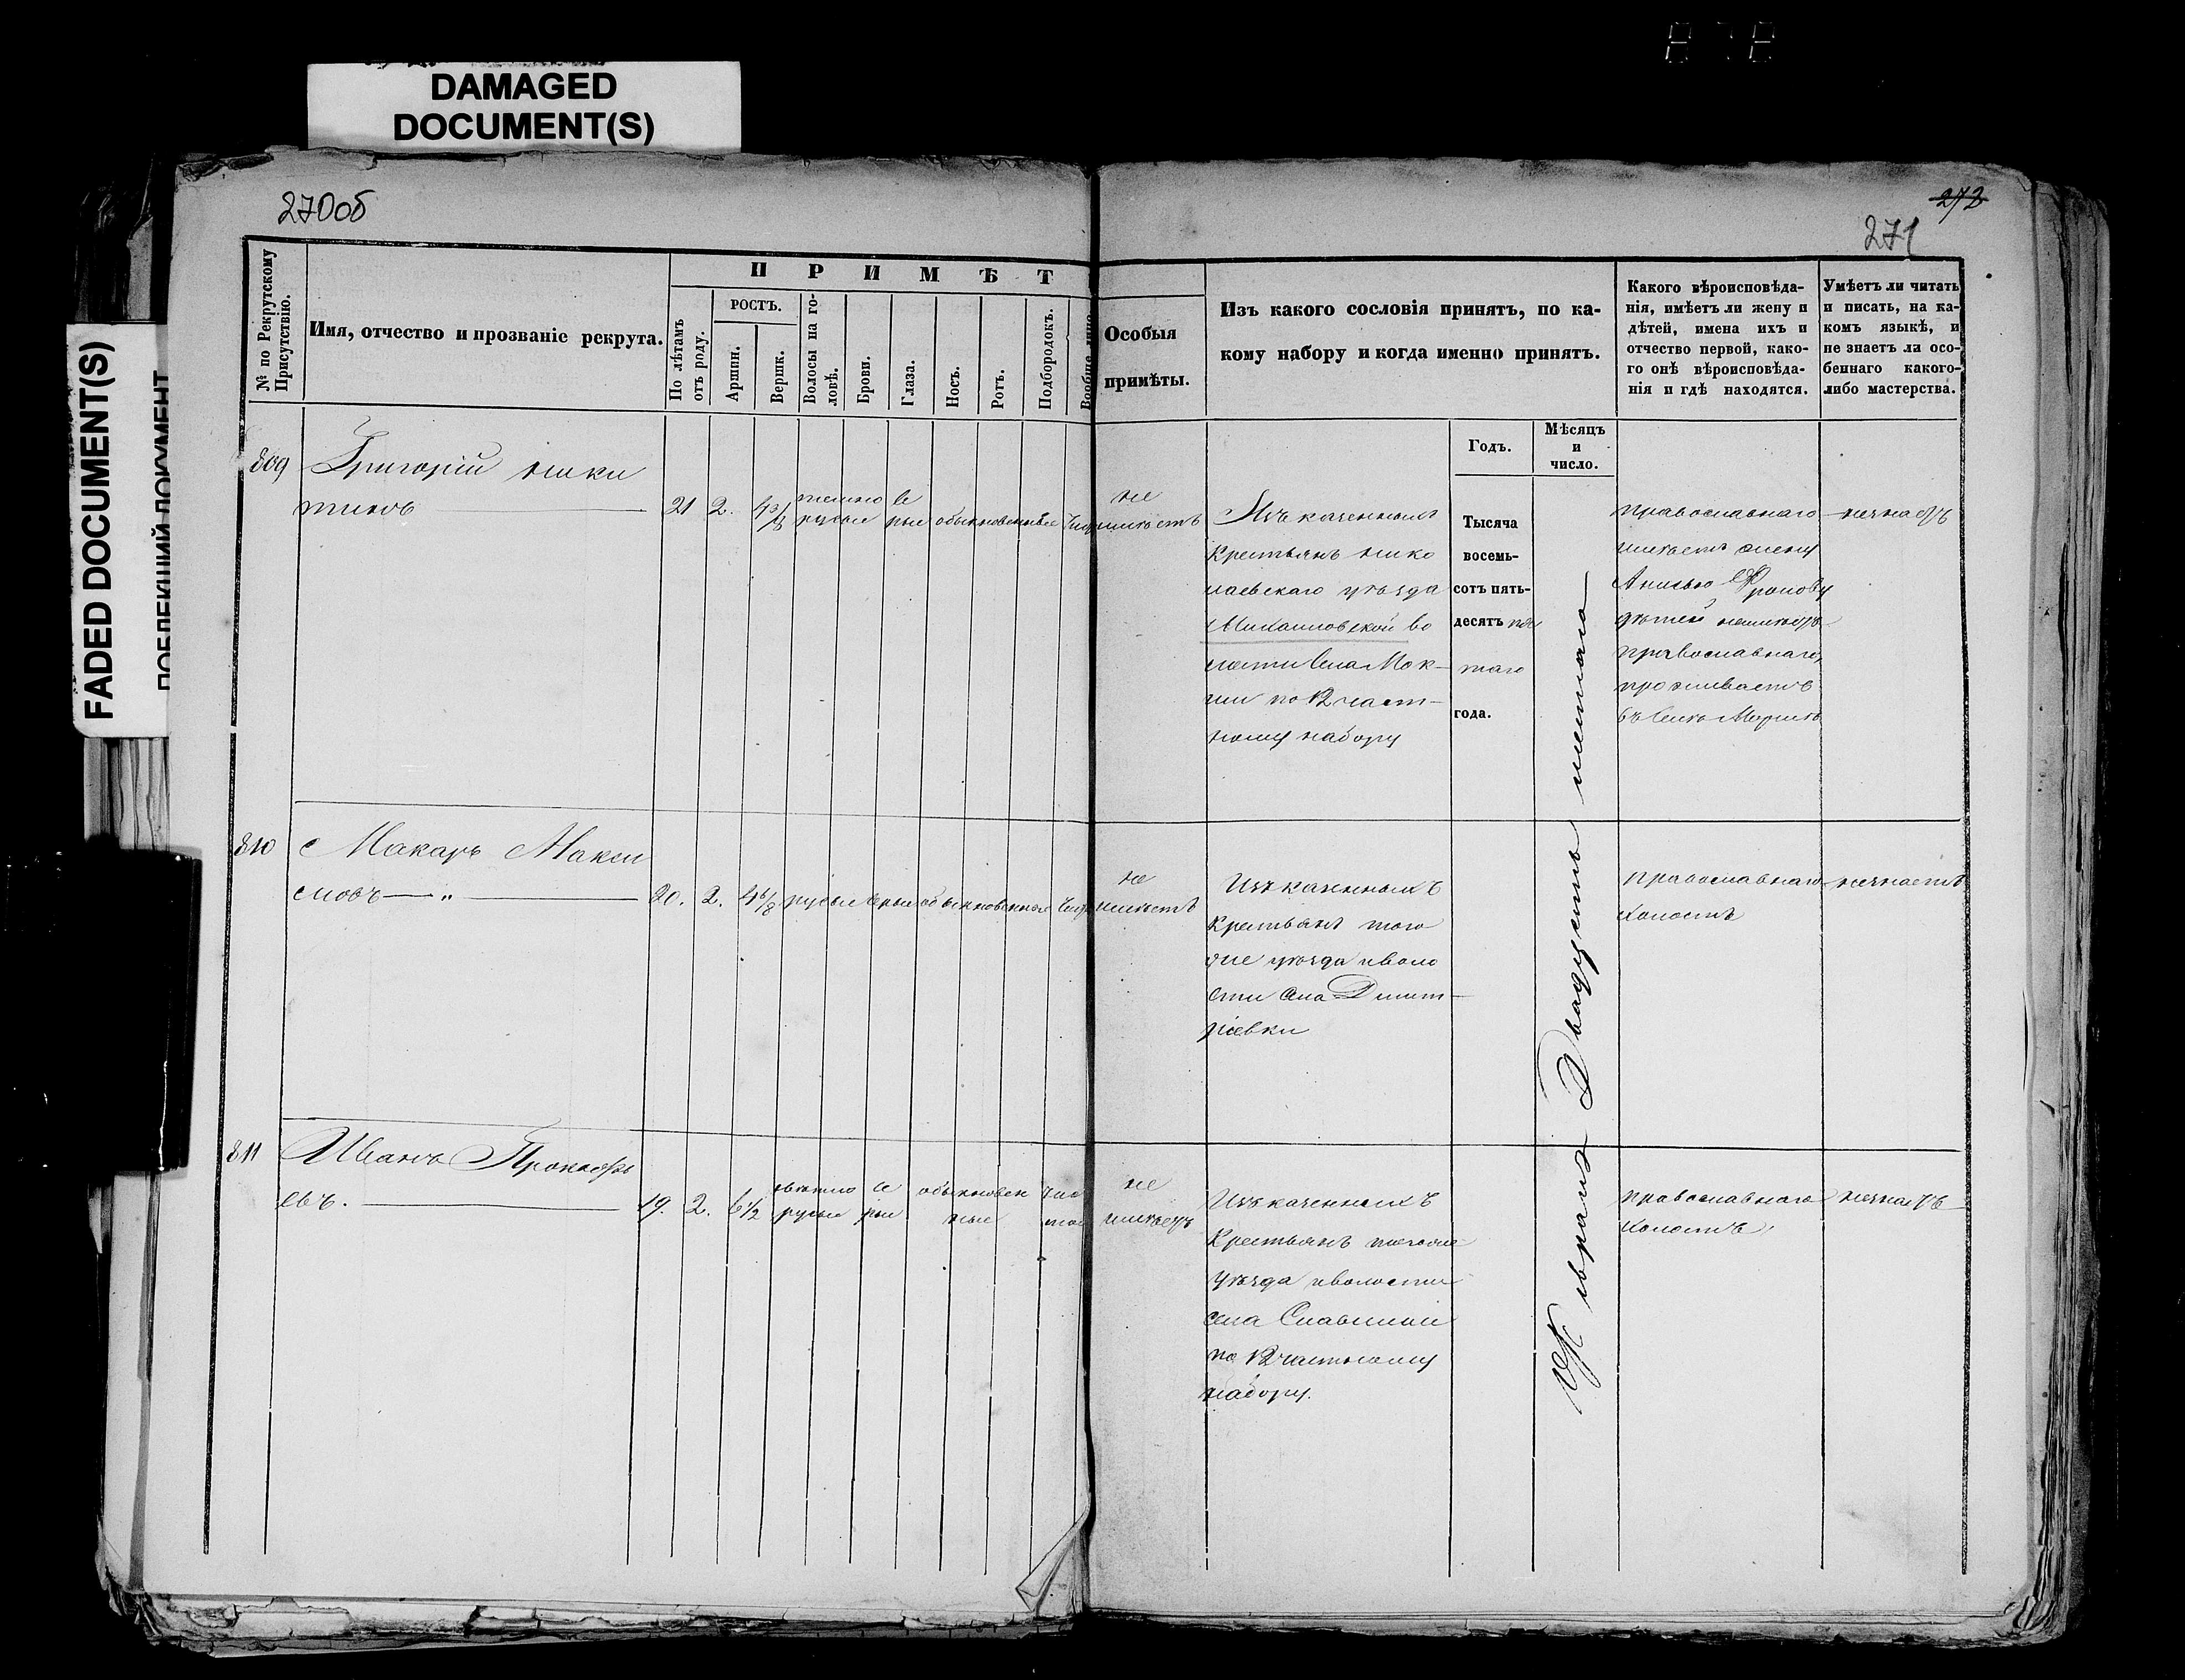 DAMAGED
DOCUMENT(S)
FADED DOCUMENT(S)
270об
272
271
№ по Рекрутскому
Присутствію.
Имя, отчество и прозваніе рекрута.
ПРИМѢТ
По лѣтамъ
отъ роду.
РОСТЪ.
Аршин.
Вершк.
Волосы на го-
ловѣ.
Брови.
Глаза.
Носъ.
Ротъ.
Подбородокъ.
Вообще лицо
Особыя
примѣты.
Изъ какого сословія принятъ, по ка-
кому набору и когда именно принятъ.
Какого вѣроисповѣда-
нія, имѣетъ ли жену и
дѣтей, имена ихъ и
отчество первой, како-
го онѣ вѣроисповѣда-
нія и гдѣ находятся.
Умѣетъ ли читать
и писать, на ка-
комъ языкѣ, и
не знаетъ ли осо-
беннаго какого-
либо мастерства.
Годъ.
Мѣсяцъ
и
число.
809
Григорій Ники
тинъ
21 2. 4 3/8
темно
русые
се
рые
обыкновенные
не
имѣетъ
Изъ казенныхъ
Крестьянъ Нико
лаевскаго уѣзда
Михаиловской во
лости села Мок-
ши по 12 част-
ному набору
Тысяча
восемь-
сотъ пять-
десятъ пя
таго
года.
Февраля Двадцать шестаго
православнаго
имѣетъ жену
Анисью Фролову
дѣтей неимѣетъ
православнаго,
проживаетъ
въ селѣ Мокшѣ
незнаетъ
810
Макаръ Макси
мовъ — " —
20. 2. 4 6/8 русые сѣрые обыкновенные
не
имѣетъ
Изъ казенныхъ
Крестьянъ того
же уѣзда и воло
сти села Дмит-
ріевки
православнаго
холостъ
незнаетъ
811
Иванъ Прокофь
евъ.
19. 2. 6 1/2
свѣтло
русые
се
рые
обыкновен
ные
чис
тое
не
имѣетъ
Изъ казенныхъ
Крестьянъ тогоже
уѣзда и волости
села Славинки
по 12 частному
набору.
православнаго
холостъ
незнаетъ